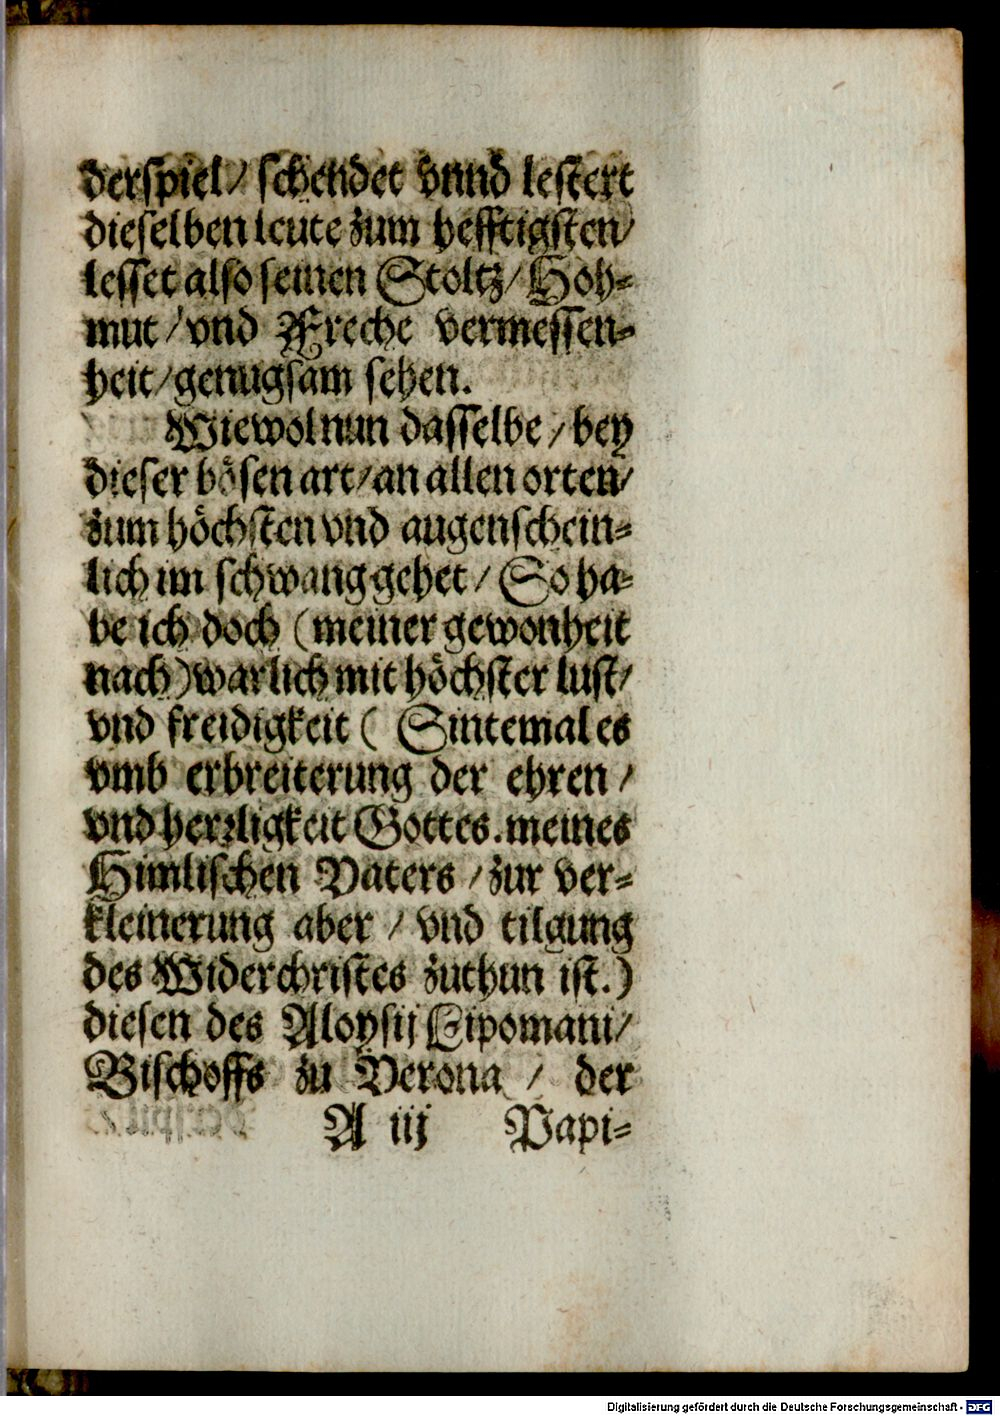 derspiel/ schendet vnnd lestert
dieselben leute zum hefftigsten/
lesset also seinen Stoltz/ Hoh-
mut/ vnd Freche vermessen-
heit/ genugsam sehen.
Wiewol nun dasselbe/ bey
dieser bösen art/ an allen orten/
zum höchsten vnd augenschein-
lich im schwang gehet/ So ha-
be ich doch (meiner gewonheit
nach) warlich mit höchster lust/
vnd freidigkeit ( Sintemal es
vmb erbreiterung der ehren/
vnd herrligkeit Gottes. meines
Himlischen Vaters/ zur ver-
kleinerung aber/ vnd tilgung
des Widerchristes zuthun ist.)
diesen des Aloysij Lipomani/
Bischoffs zu Verona/ der
A iij Papi-
Digitalisierung gefördert durch die Deutsche Forschungsgemeinschaft - DFG